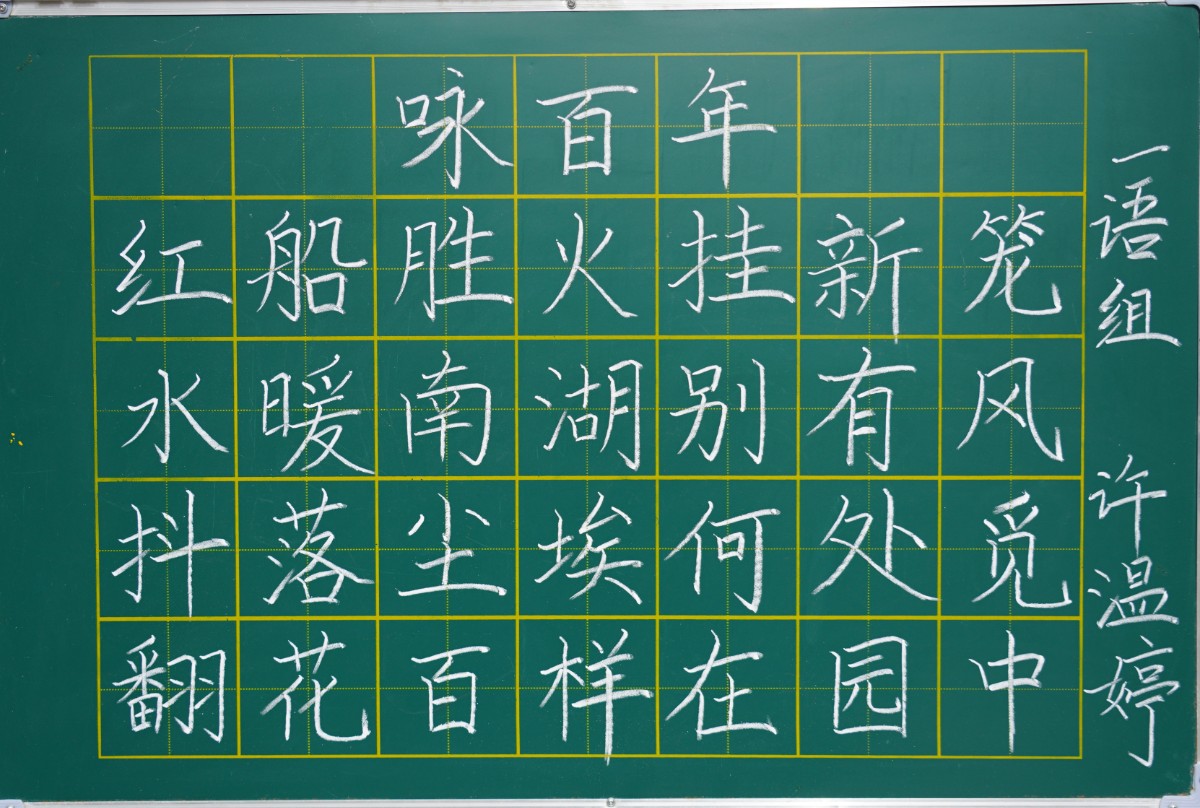 咏百年
红船胜火挂新笼
水暖南湖别有风
抖落尘埃何处觅
翻花百样在园中
一语组 许温婷